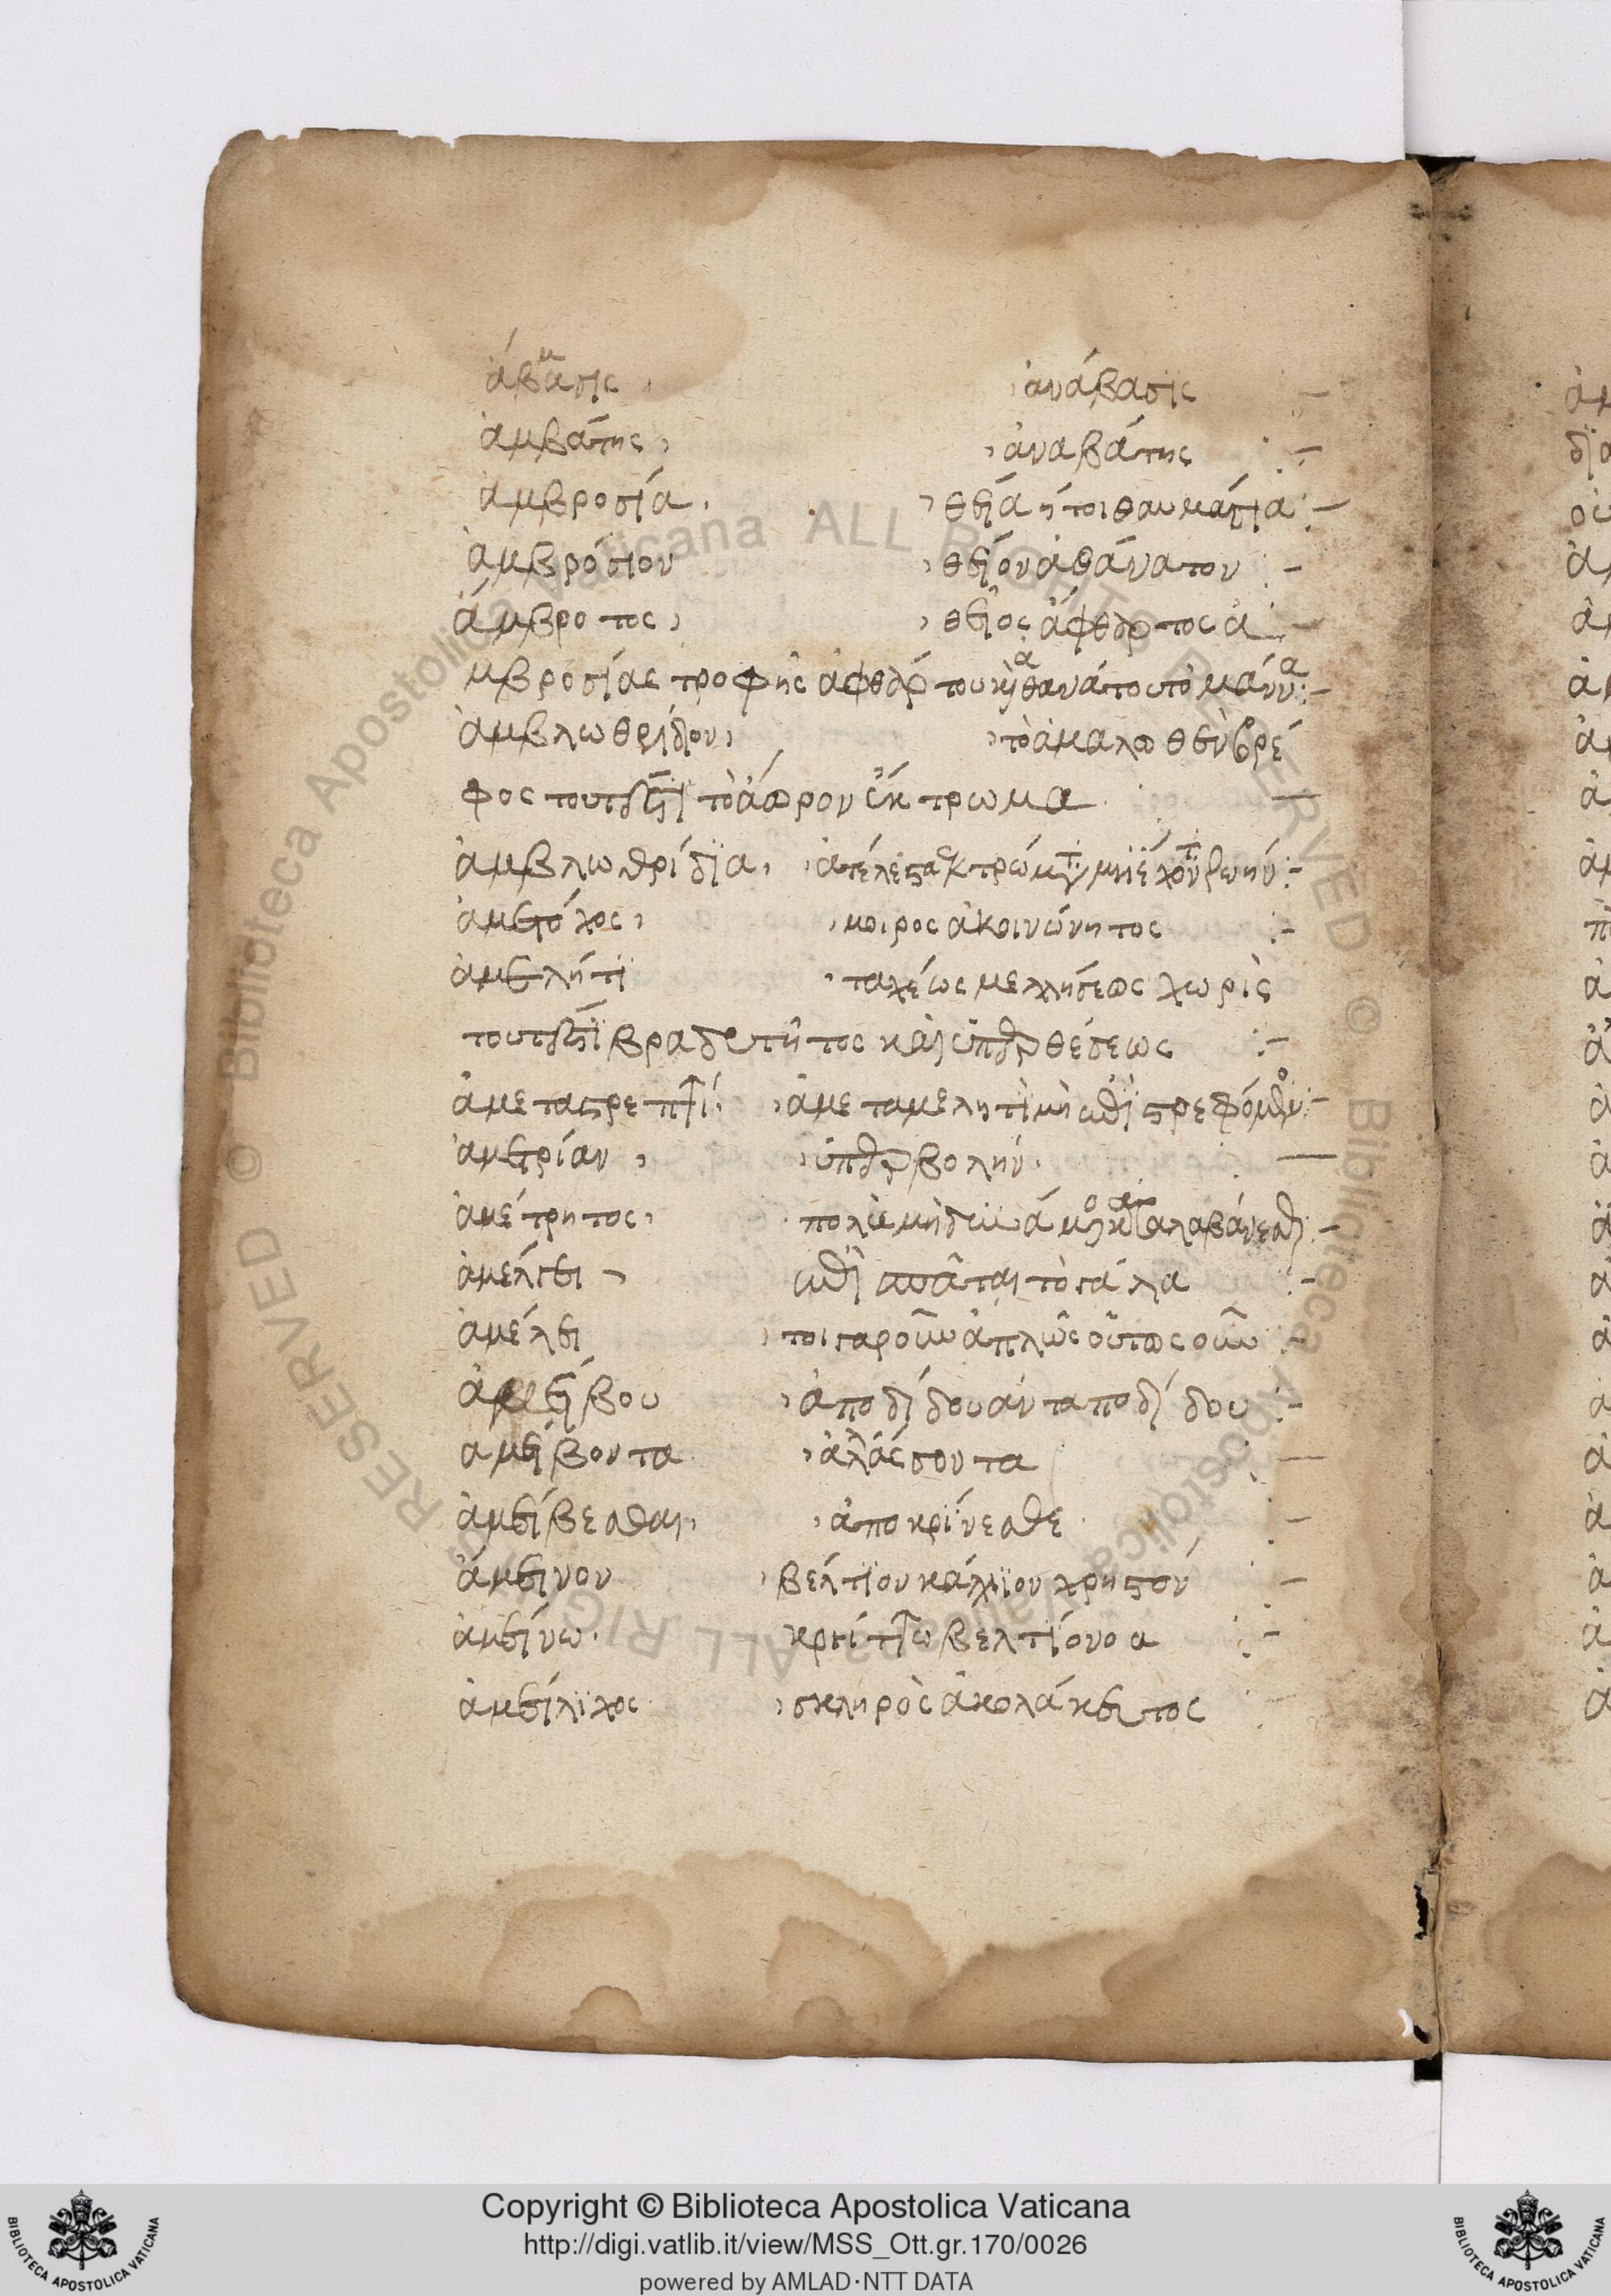 ἄβμασις, ἀνάβασις :-
ἀμβάτης, ἀναβάτης :-
ἀμβροσία, θεία ἤτοι θαυμασία :-
ἀμβρόσιον θεῖον ἀθάνατον :-
ἄμβροτος, θεῖος ἄφθαρτος ἀ
μβροσίας τροφῆς ἀφθάρτου καὶ ἀθανάτου τὸ μάννα :-
ἀμβλωθρίδιον, τὸ ἀμαλωθὲν βρέ
φος τουτέστι τὸ ἄωρον ἔκτρωμα
ἀμβλωθρίδια, ἀτέλεστα ἐκτρώματα μὴ ἔχοντα ζωήν :-
ἀμέτοχος, μοιρος ἀκοινώνητος :-
ἀμελητὶ ταχέως μελλήσεως χωρὶς
τουτέστι βραδυτῆτος καὶ ὑπερθέσεως :-
ἀμεταστρεπτί, ἀμεταμελητὶ μὴ ἐπιστρεφόμενον :-
ἀμετρίαν, ὑπερβολήν.
ἀμέτρητος,
ἀμέλγει
ἀμέλει τοιγαροῦν ἁπλῶς οὕτως οὖν :-
ἀμείβου ἀποδίδου ἀνταποδίδου :-
ἀμείβοντα ἀλάσσοντα
ἀμείβεσθαι, ἀποκρίνεσθε
ἄμεινον βέλτιον κάλλιον χρηστόν
ἀμείνω. κρείττω βελτίονοα :-
ἀμείλιχος σκληρὸς ἀκολάκευτος
Copyright © Biblioteca Apostolica Vaticana
http://digi.vatlib.it/view/MSS_Ott.gr.170/0026
powered by AMLAD·NTT DATA